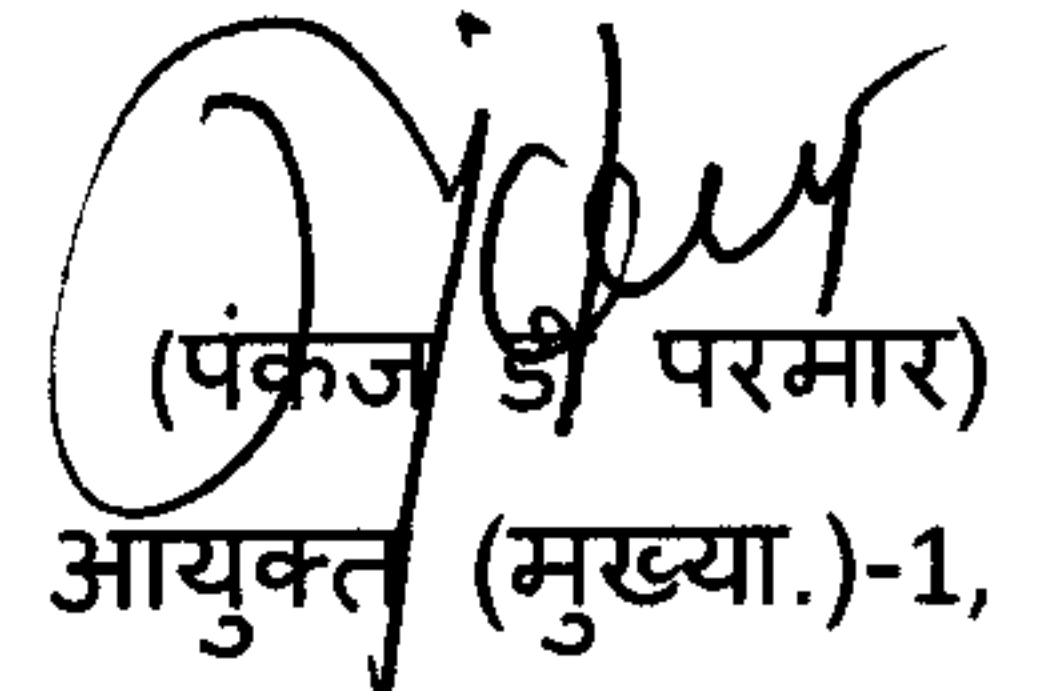 (पंकज डी परमार)
आयुक्त (मुख्या.)-1,